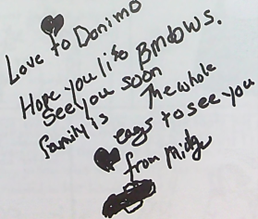 Love to Danimo
Hope you lite BMDOWS.
See you soon
The whole
family is eags to see you
from Midge